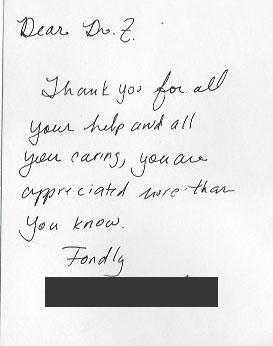 Dear Dr. Z.
Thank you for all
your help and all
your caring, you are
appreciated more than
you know.
Fondly